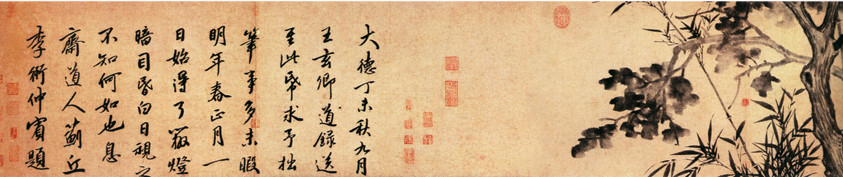 大德丁未秋九月
王玄卿道錄送
至此帋求予拙
筆事多未暇
明年春正月一
日始得了燈
暗目昏白日視之
不知何如也息
齋道人薊丘
李衎仲賓題